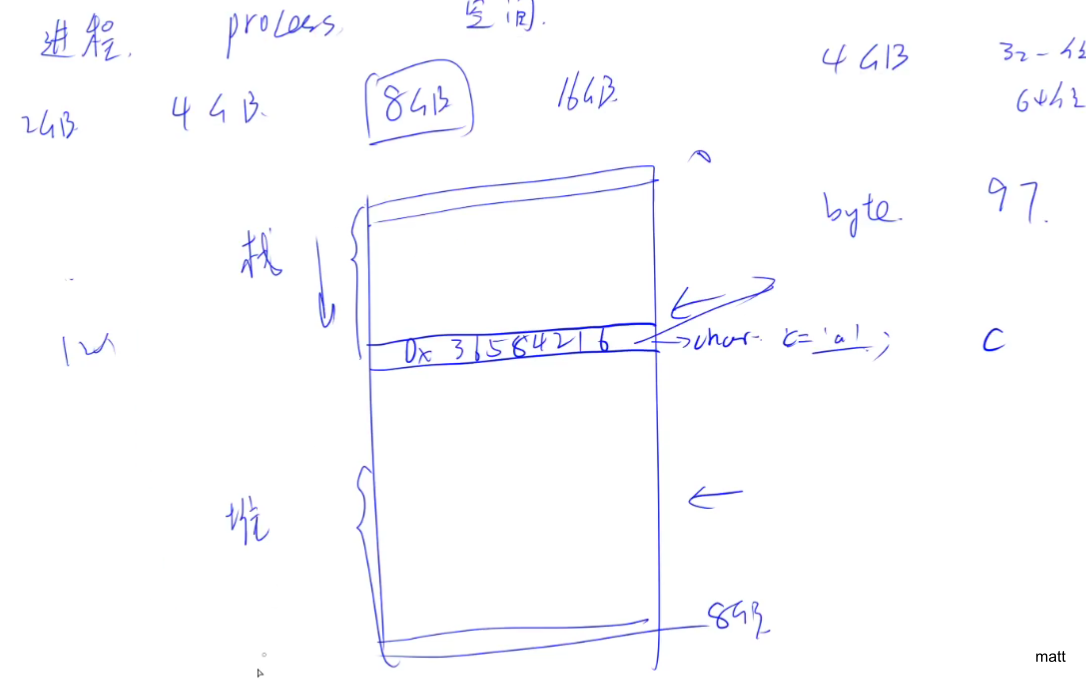 进程. process 空间.
4GB 32-bit
2GB 4GB. 8GB 16GB. 64bit
byte. 97.
栈
0x 36584216 char c='a'; C
堆
8GB
matt